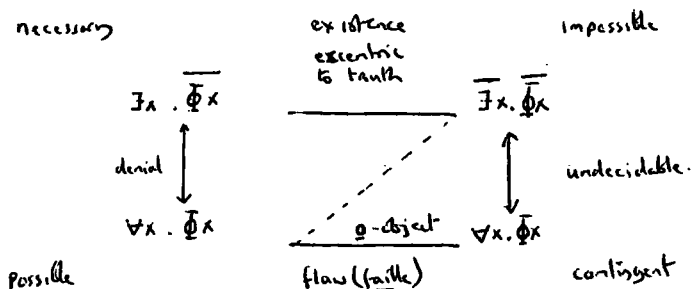 necessary existence impossible
excentric
to truth
∃x . Φ̅x̅ ∃̅x . Φ̅x̅
denial undecidable.
∀x . Φx a-object ∀x . Φx
possible flaw (faille) contingent